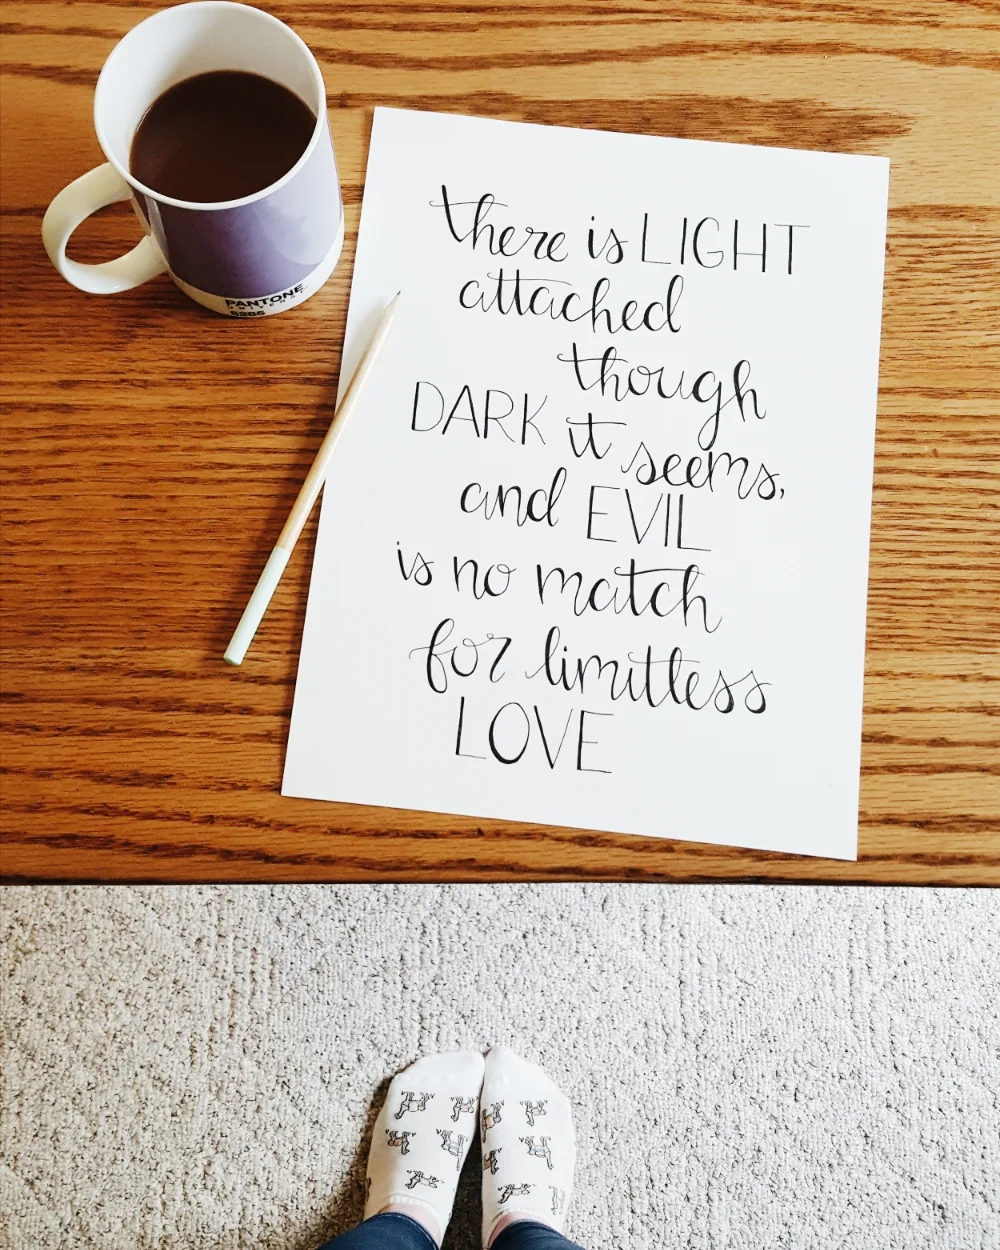 PANTONE
UNIVERSE
5285
there is LIGHT
attached
though
DARK it seems,
and EVIL
is no match
for limitless
LOVE